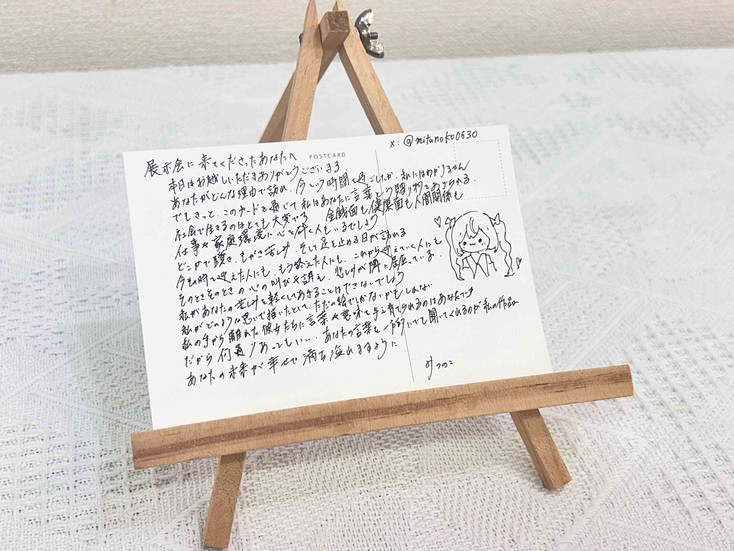 X: @mitunoko0630
POSTCARD
展示会に来てくださったあなたへ
本日はお越しいただきありがとうございます
あなたがどんな理由で訪れ、今この時間を過ごしたか、私にはわかりません
でもきっと、このカードを通じて私はあなたに言葉という贈り物をあげられる
社会で生きるのはとても大変です 金銭面も健康面も人間関係も
仕事や家庭環境に心を砕く人もいるでしょう
どこかで躓き、もがき苦しみ、そして足を止める日が訪れる
今その時を迎えた人にも、もう終えた人にも、これから迎えていく人にも
そのときそのときの心の叫びや訴え、悲しみが隣に居座っている
私があなたの苦しみを軽くしてあげることはできないでしょう
私がどのような思いで描いたとして、ただの絵でしかないかもしれない
私の手から離れた彼女たちに言葉や意味を与え育てられるのはあなたです
だから 何度 あってもいい、あなたの言葉を一方的にでも聞いてくれるのが私の作品
あなたの未来が幸せで満ち溢れますように
みつのこ